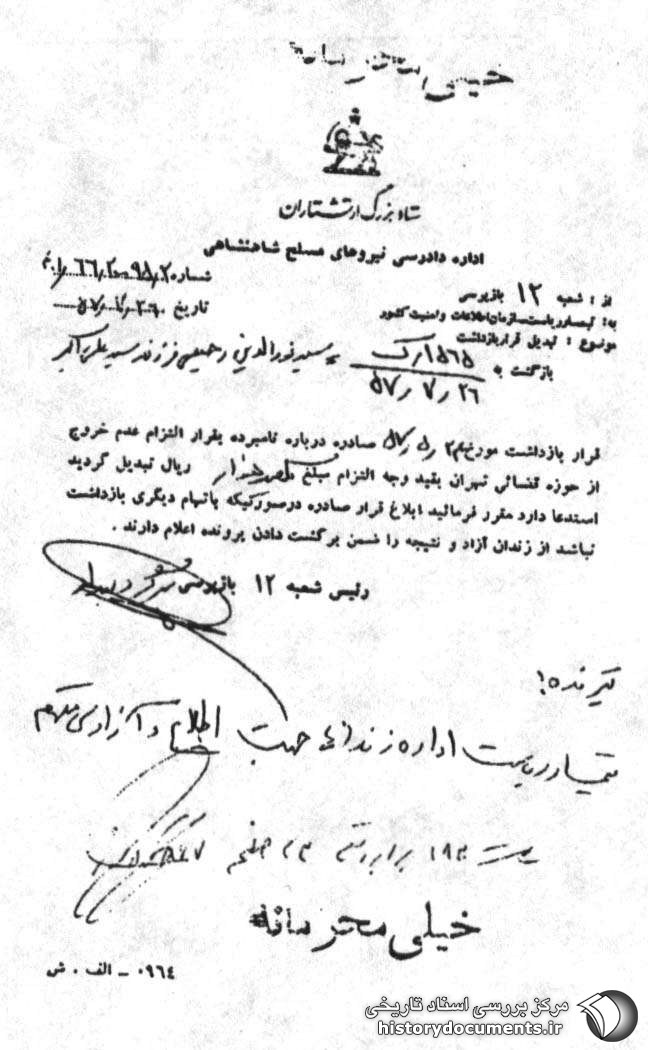 خیلی
ستاد بزرگ ارتشتاران
اداره دادرسی نیروهای مسلح شاهنشاهی
شماره
از : شعبه ۱۲ بازپرسی
تاریخ
به: تیمسار ریاست سازمان اطلاعات و امنیت کشور
موضوع : تبدیل قرار بازداشت
بازگشت به ۱۵۶۵ ارک سید نورالدین رحیمی فرزند سید علی اکبر
۲۶ ر ۷ ر ۵۷
قرار بازداشت مورخه صادره درباره نامبرده بقرار التزام عدم خروج
از حوزه قضائی تهران بقید وجه التزام مبلغ یکصد هزار ریال تبدیل گردید
استدعا دارد مقرر فرمائید ابلاغ قرار صادره درصورتیکه باتهام دیگری بازداشت
نباشد از زندان آزاد و نتیجه را ضمن برگشت دادن پرونده اعلام دارند .
رئیس شعبه ۱۲ بازپرسی سرگرد
گیرنده:
تیمسار ریاست اداره زندانها جهت اطلاع و آزادی متهم
خیلی محرمانه
۰۹۶۴ - الف . ش
مرکز بررسی اسناد تاریخی
historydocuments.ir